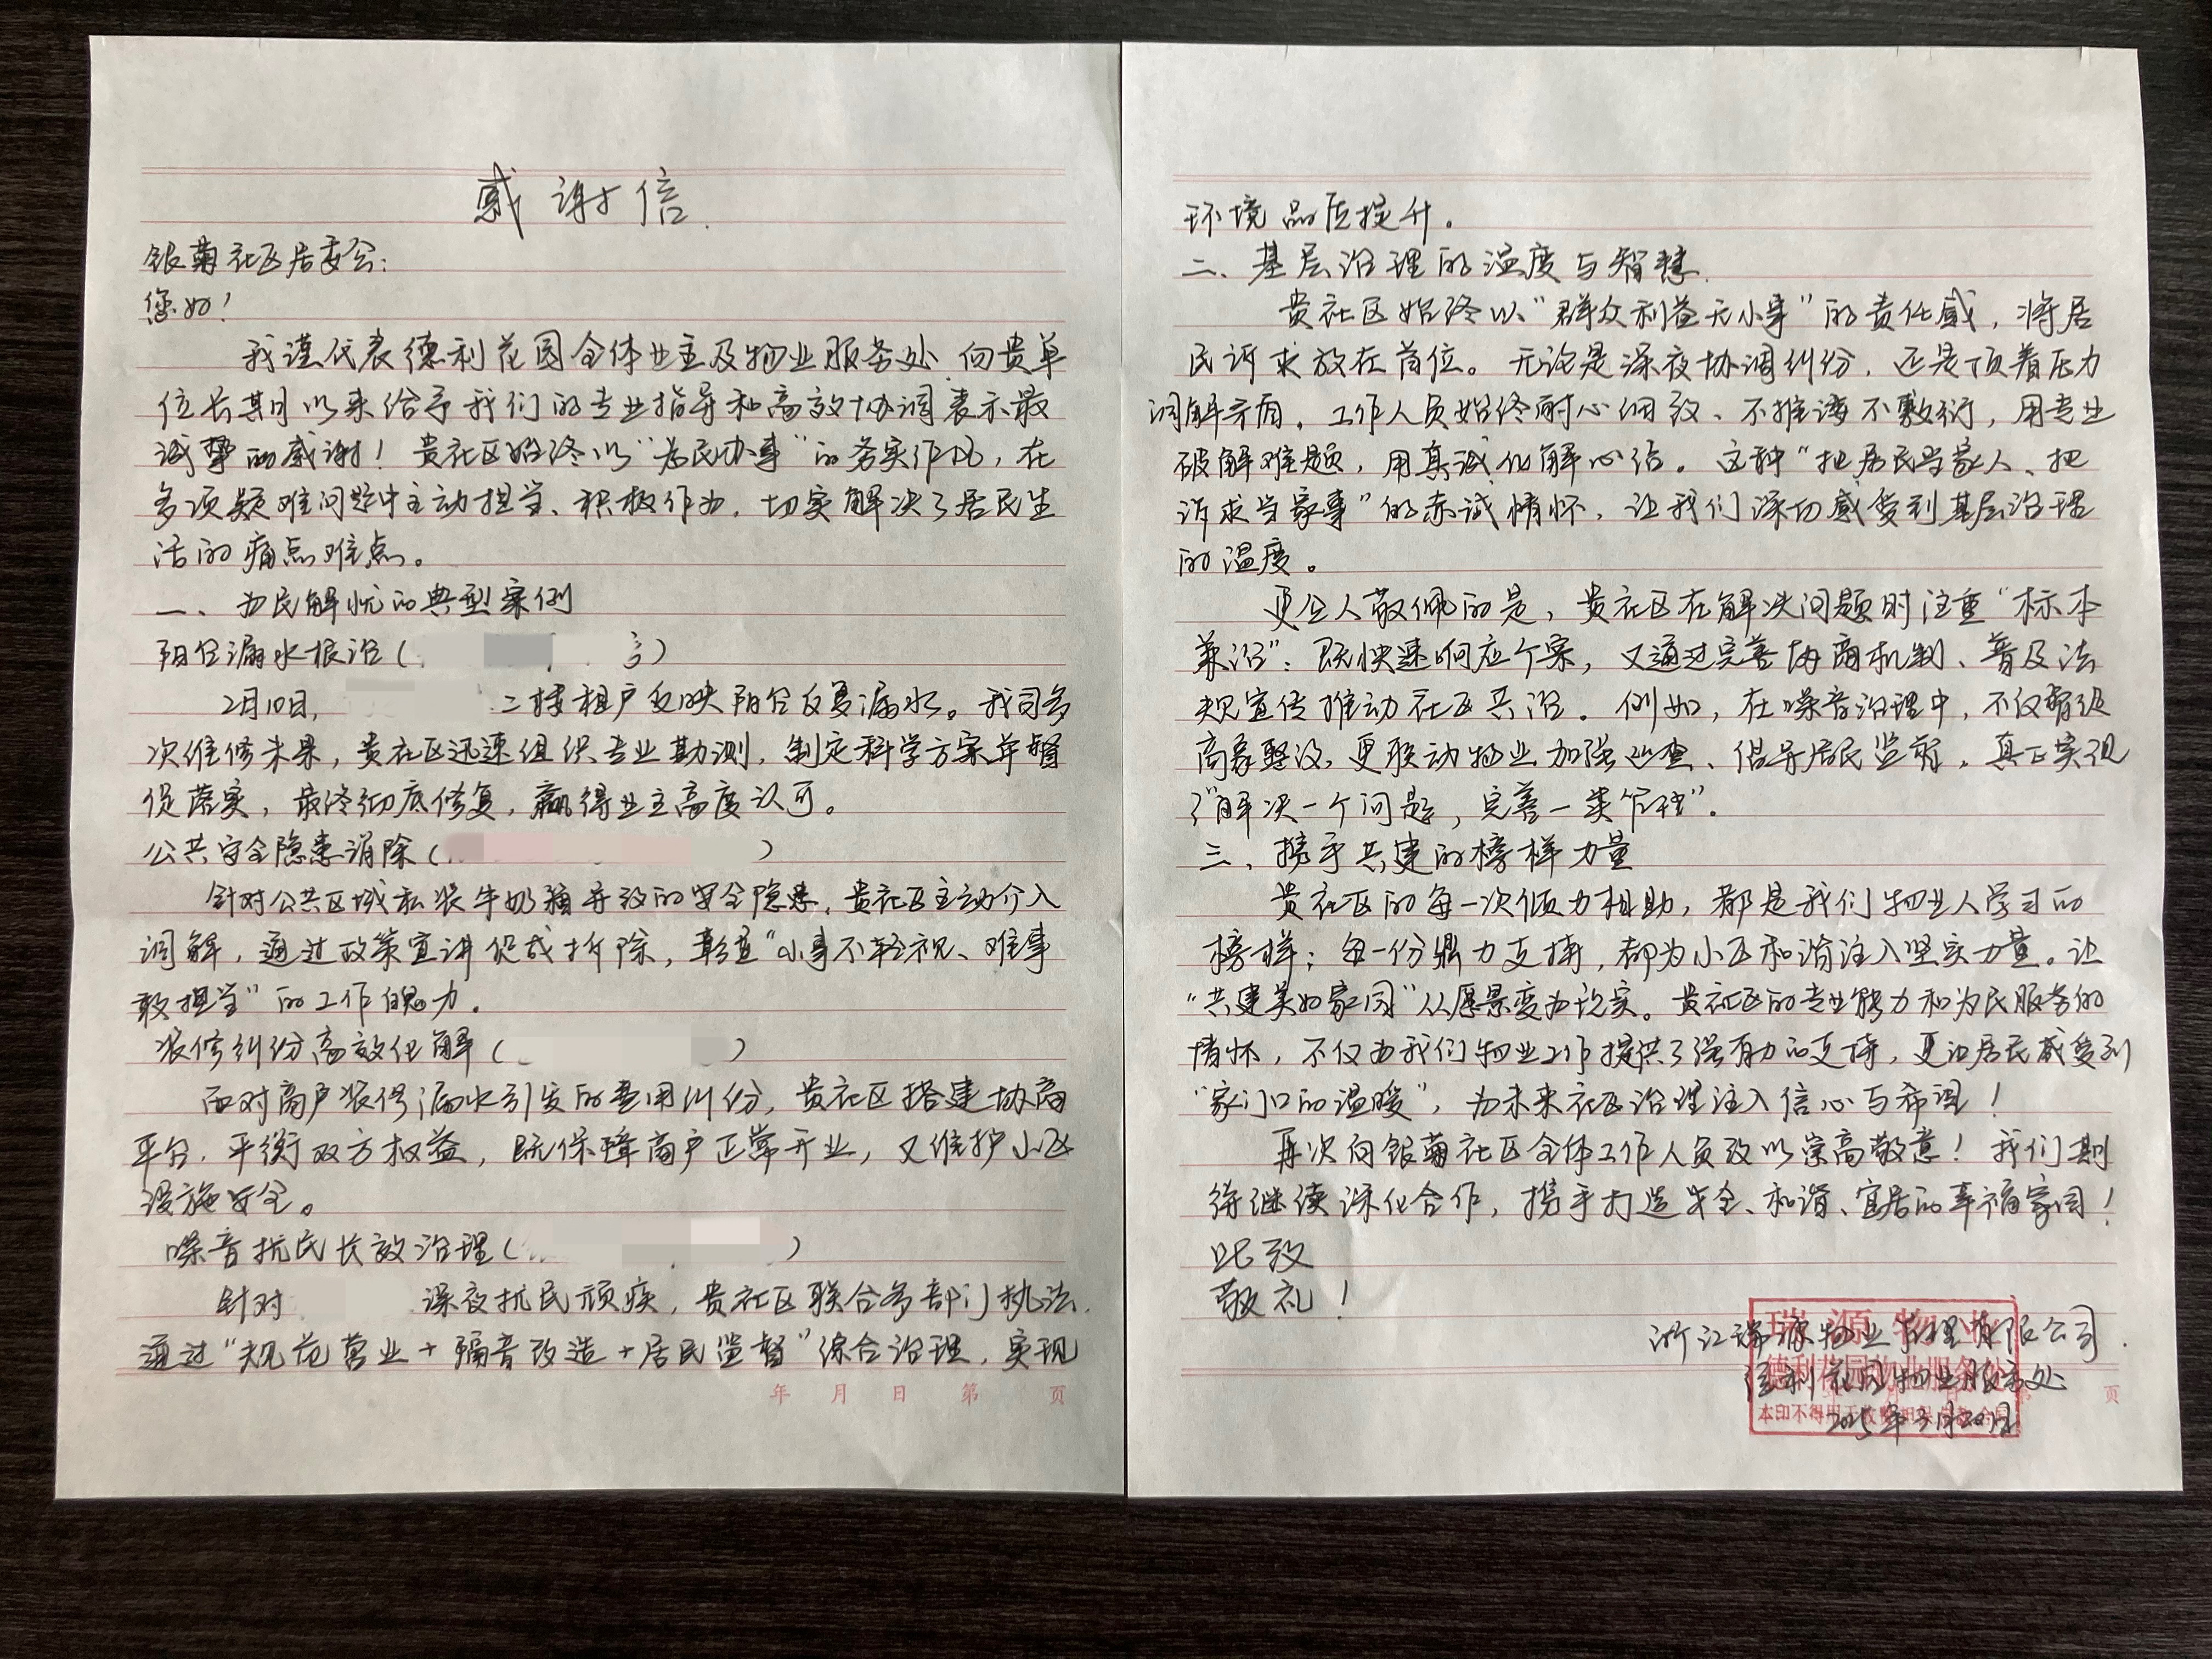 感谢信
银菊社区居委会：
您好！
我谨代表德利花园全体业主及物业服务处，向贵单
位长期以来给予我们的专业指导和高效协调表示最
诚挚的感谢！贵社区始终以“为民办事”的务实作风，在
多项疑难问题中主动担当、积极作为，切实解决了居民生
活的痛点难点。
一、为民解忧的典型案例
阳台漏水根治（
2月10日，二楼租户反映阳台反复漏水。我司多
次维修未果，贵社区迅速组织专业勘测，制定科学方案并督
促落实，最终彻底修复，赢得业主高度认可。
公共安全隐患消除（ ）
针对公共区域私装牛奶箱导致的安全隐患，贵社区主动介入
调解，通过政策宣讲促成拆除，彰显“小事不轻视、难事
敢担当”的工作魄力。
装修纠纷高效化解（ ）
面对商户装修漏水引发的费用纠纷，贵社区搭建协商
平台，平衡双方权益，既保障商户正常开业，又维护小区
设施安全。
噪音扰民长效治理（ ）
针对 深夜扰民顽疾，贵社区联合多部门执法，
通过“规范营业+隔音改造+居民监督”综合治理，实现
年 月 日 第 页
环境品质提升。
二、基层治理的温度与智慧
贵社区始终以“群众利益无小事”的责任感，将居
民诉求放在首位。无论是深夜协调纠纷，还是顶着压力
调解矛盾，工作人员始终耐心细致、不推诿不敷衍，用专业
破解难题，用真诚化解心结。这种“把居民当家人、把
诉求当家事”的赤诚情怀，让我们深切感受到基层治理
的温度。
更令人敬佩的是，贵社区在解决问题时注重“标本
兼治”：既快速响应个案，又通过完善协商机制、普及法
规宣传推动社区共治。例如，在噪音治理中，不仅督促
商家整改，更联动物业加强巡查、倡导居民监督，真正实现
了“解决一个问题，完善一类管理”。
三、携手共建的榜样力量
贵社区的每一次倾力相助，都是我们物业人学习的
榜样；每一份鼎力支持，都为小区和谐注入坚实力量。让
“共建美好家园”从愿景变为现实。贵社区的专业能力和为民服务的
情怀，不仅为我们物业工作提供了强有力的支持，更让居民感受到
“家门口的温暖”，为未来社区治理注入信心与希望！
再次向银菊社区全体工作人员致以崇高敬意！我们期
待继续深化合作，携手打造安全、和谐、宜居的幸福家园！
此致
敬礼！
浙江瑞源物业管理有限公司
德利花园物业服务处
2025年3月20日
瑞源物业
德利花园物业服务处
页